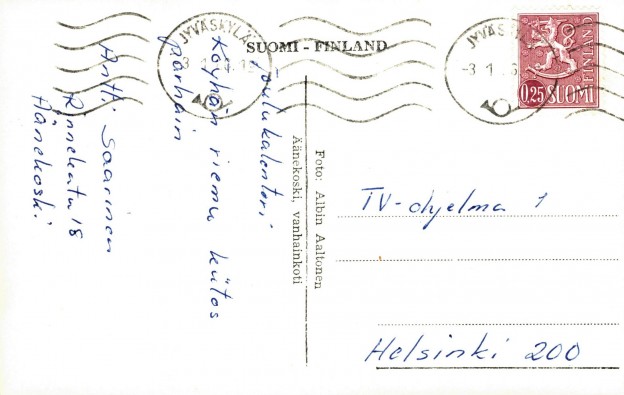 SUOMI - FINLAND
JYVÄSKYLÄ
JYVÄSKYLÄ
FINLAND
0,25 SUOMI
Joulukalenteri
Köyhän riemu kiitos
parhain
Antti Saarinen
Rinnekatu 18
Äänekoski.
Foto: Albin Aaltonen
Äänekoski, vanhainkoti
TV-ohjelma 1
Helsinki 200